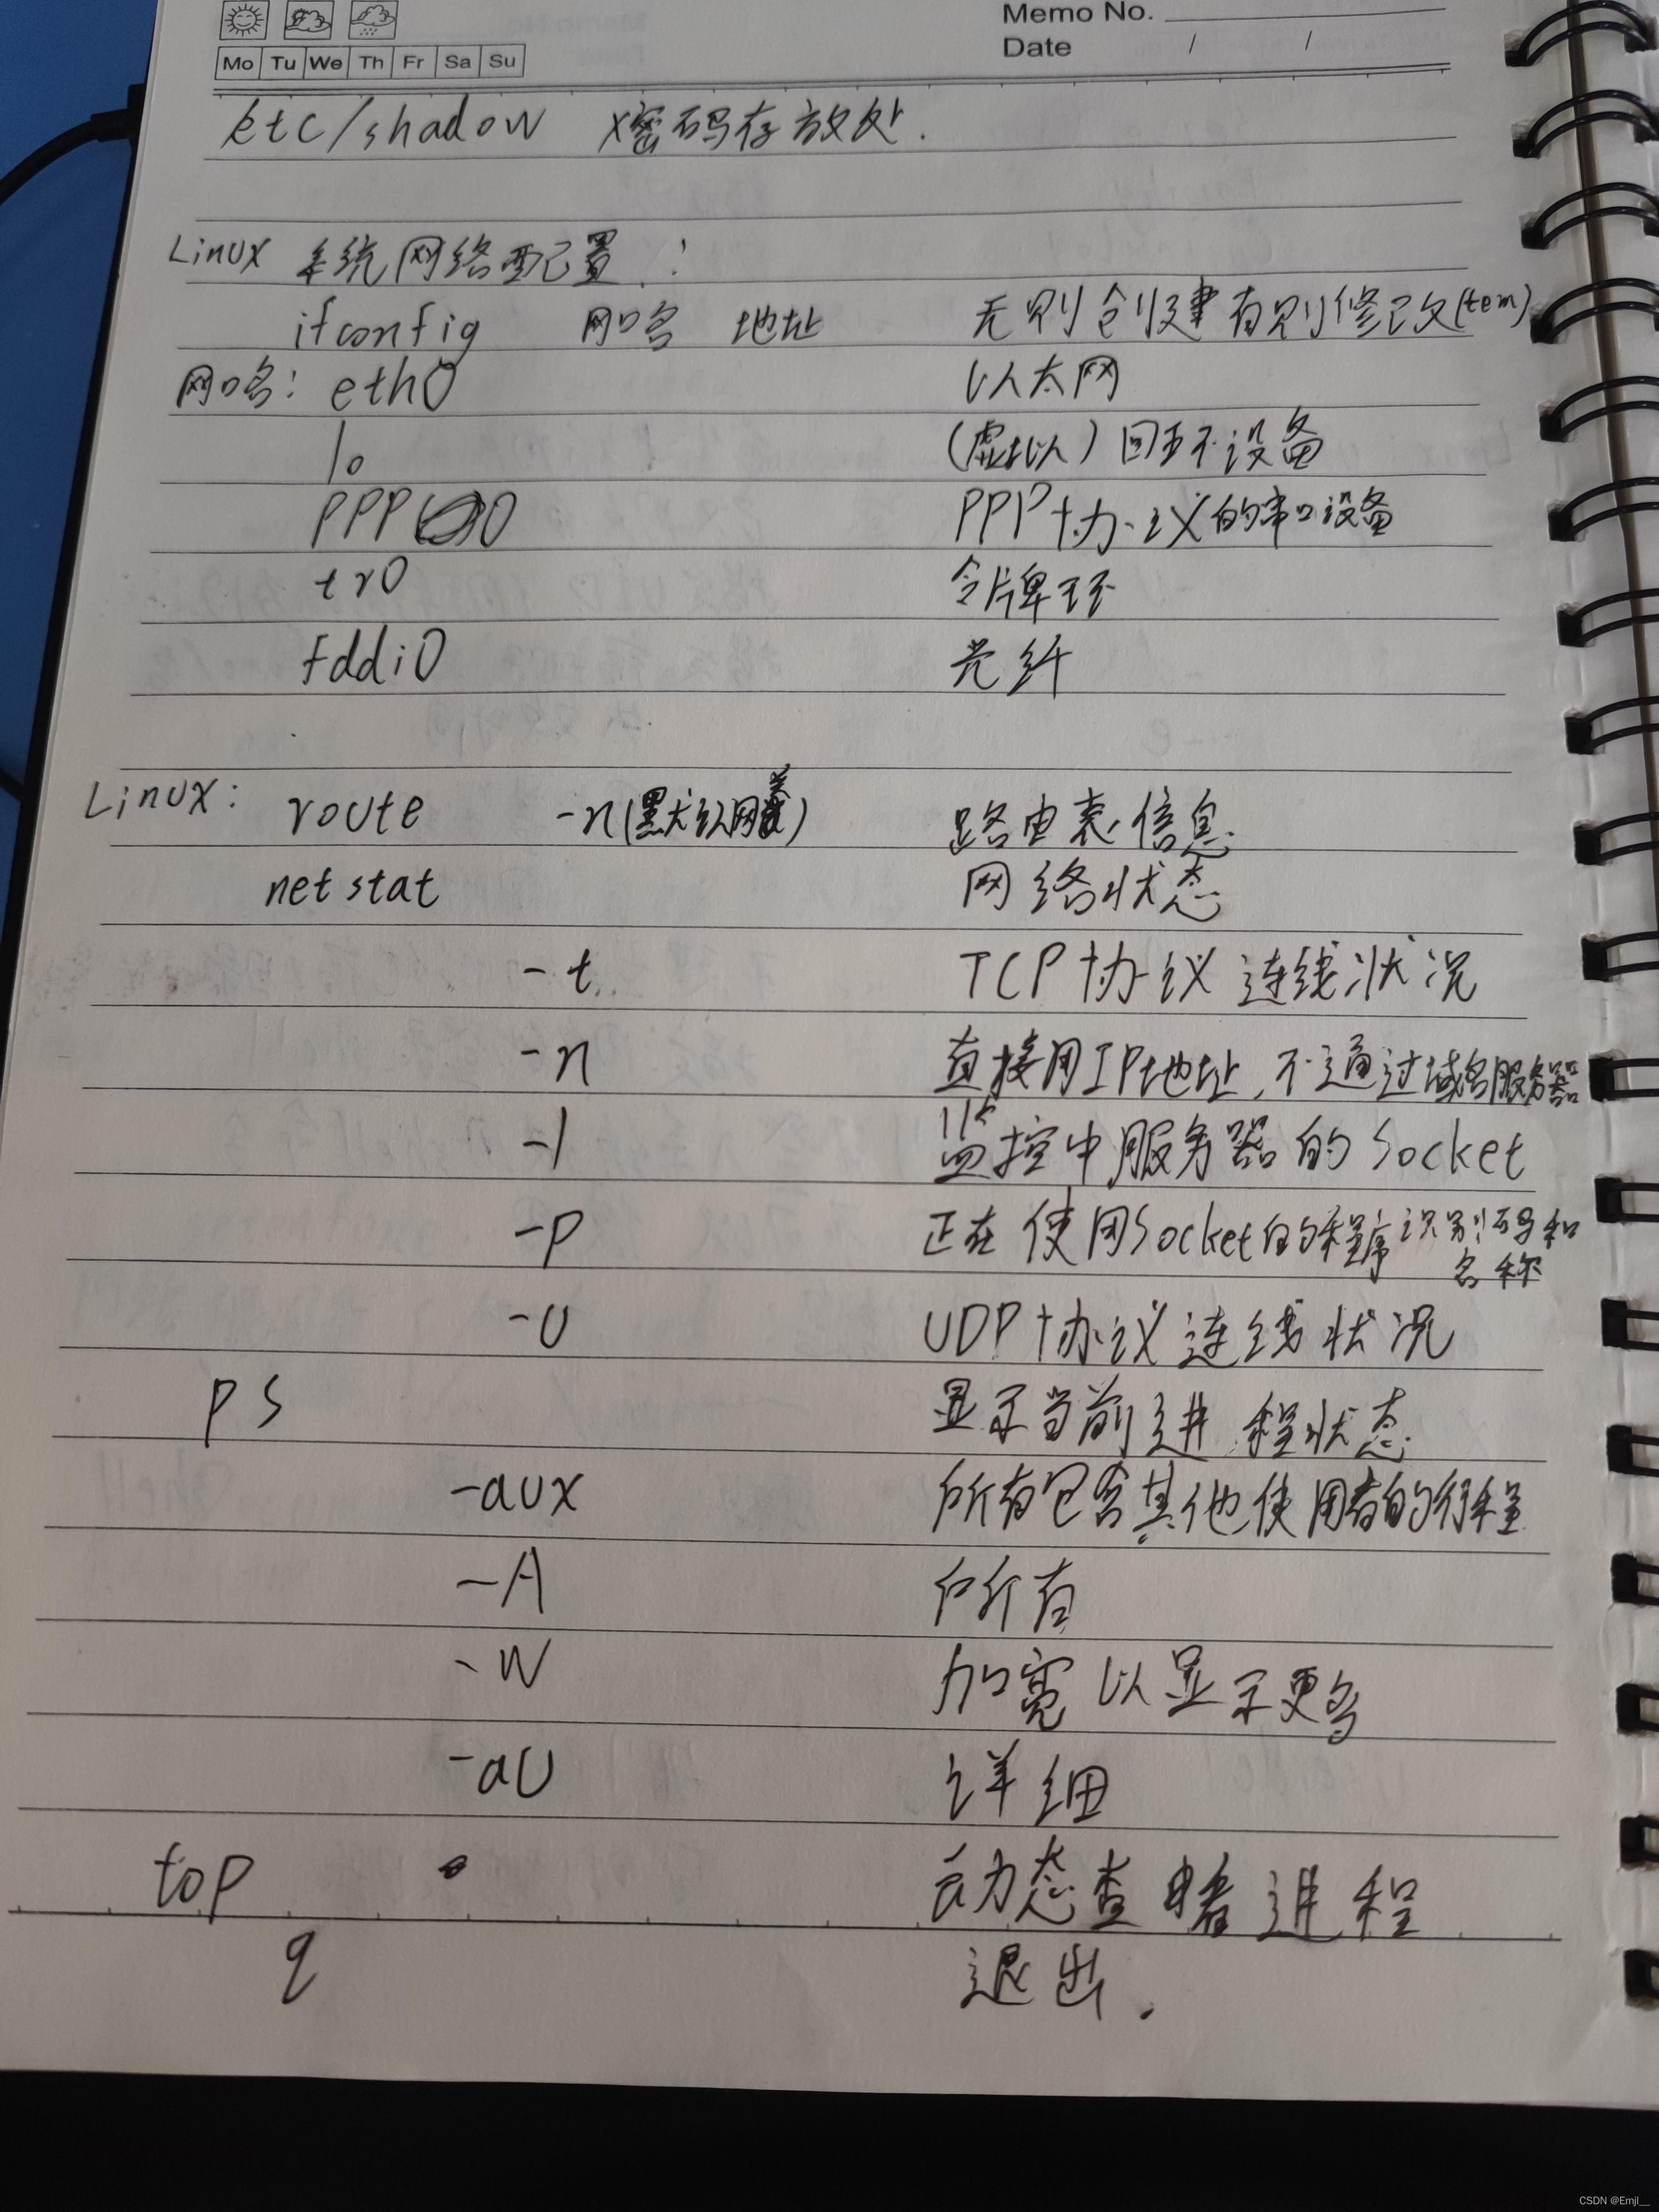 Memo No.
Mo Tu We Th Fr Sa Su
Date / /
etc/shadow x密码存放处.
Linux 系统网络配置:
ifconfig 网口名 地址 无则创建有则修改(tem)
网口名: eth0 以太网
lo (虚拟)回环设备
PPP0 PPP协议的串口设备
tr0 令牌环
fddi0 光纤
Linux: route -n(默认网关) 路由表信息
netstat 网络状态
-t TCP协议连线状况
-n 直接用IP地址,不通过域名服务器
-l 监控中服务器的Socket
-p 正在使用Socket的程序识别码和
名称
-U UDP协议连线状况
ps 显示当前进程状态
-aux 所有包含其他使用者的行程
-A 所有
-w 加宽以显示更多
-aU 详细
top 动态查睹进程
q 退出.
CSDN @Emjl__